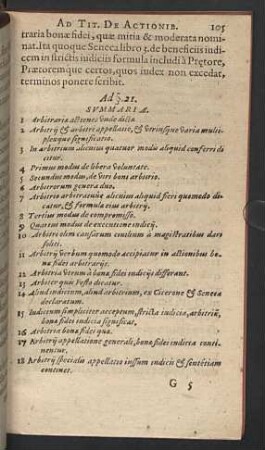 AD TIT. DE ACTIONIB. 105
traria bonæ fidei, quæ mitia & moderata nomi-
nat. Ita quoque Seneca libro 3. de beneficiis iudi-
cem in strictis iudiciis formula includi à Prętore,
Prætoremque certos, quos iudex non excedat,
terminos ponere scribit.
Ad §. 21.
SVMMARIA.
1 Arbitrariæ actiones vnde dictæ.
2 Arbitrij & arbitri appellatio, & vtriusque varia multi-
plexque significatio.
3 In arbitrium alicuius quatuor modis aliquid conferri di-
citur.
4 Primus modus de libera voluntate.
5 Secundus modus, de viri boni arbitrio.
6 Arbitrorum genera duo.
7 Arbitratu alicuius aliquid fieri quomodo di-
catur, & formula eius arbitrij.
8 Tertius modus de compromisso.
9 Quartus modus de executione iudicij.
10 Arbitros olim causarum ciuilium à magistratibus dari
solitos.
11 Arbitrij verbum quomodo accipiatur in actionibus bo-
næ fidei arbitrarijs.
12 Arbitria à bonæ fidei iudicijs differant.
13 Arbiter quis Festo dicatur.
14 Aliud iudicium, aliud arbitrium, ex Cicerone & Seneca
declaratum.
15 Iudicium simpliciter acceptum, stricta iudicia, arbitriũ,
bonæ fidei iudicia significat.
16 Arbitria bonæ fidei quæ.
17 Arbitrij appellatione generali, bonæ fidei iudicia conti-
nentur.
18 Arbitrij specialis appellatio iussum iudicis & sentẽtiam
continet.
G 5